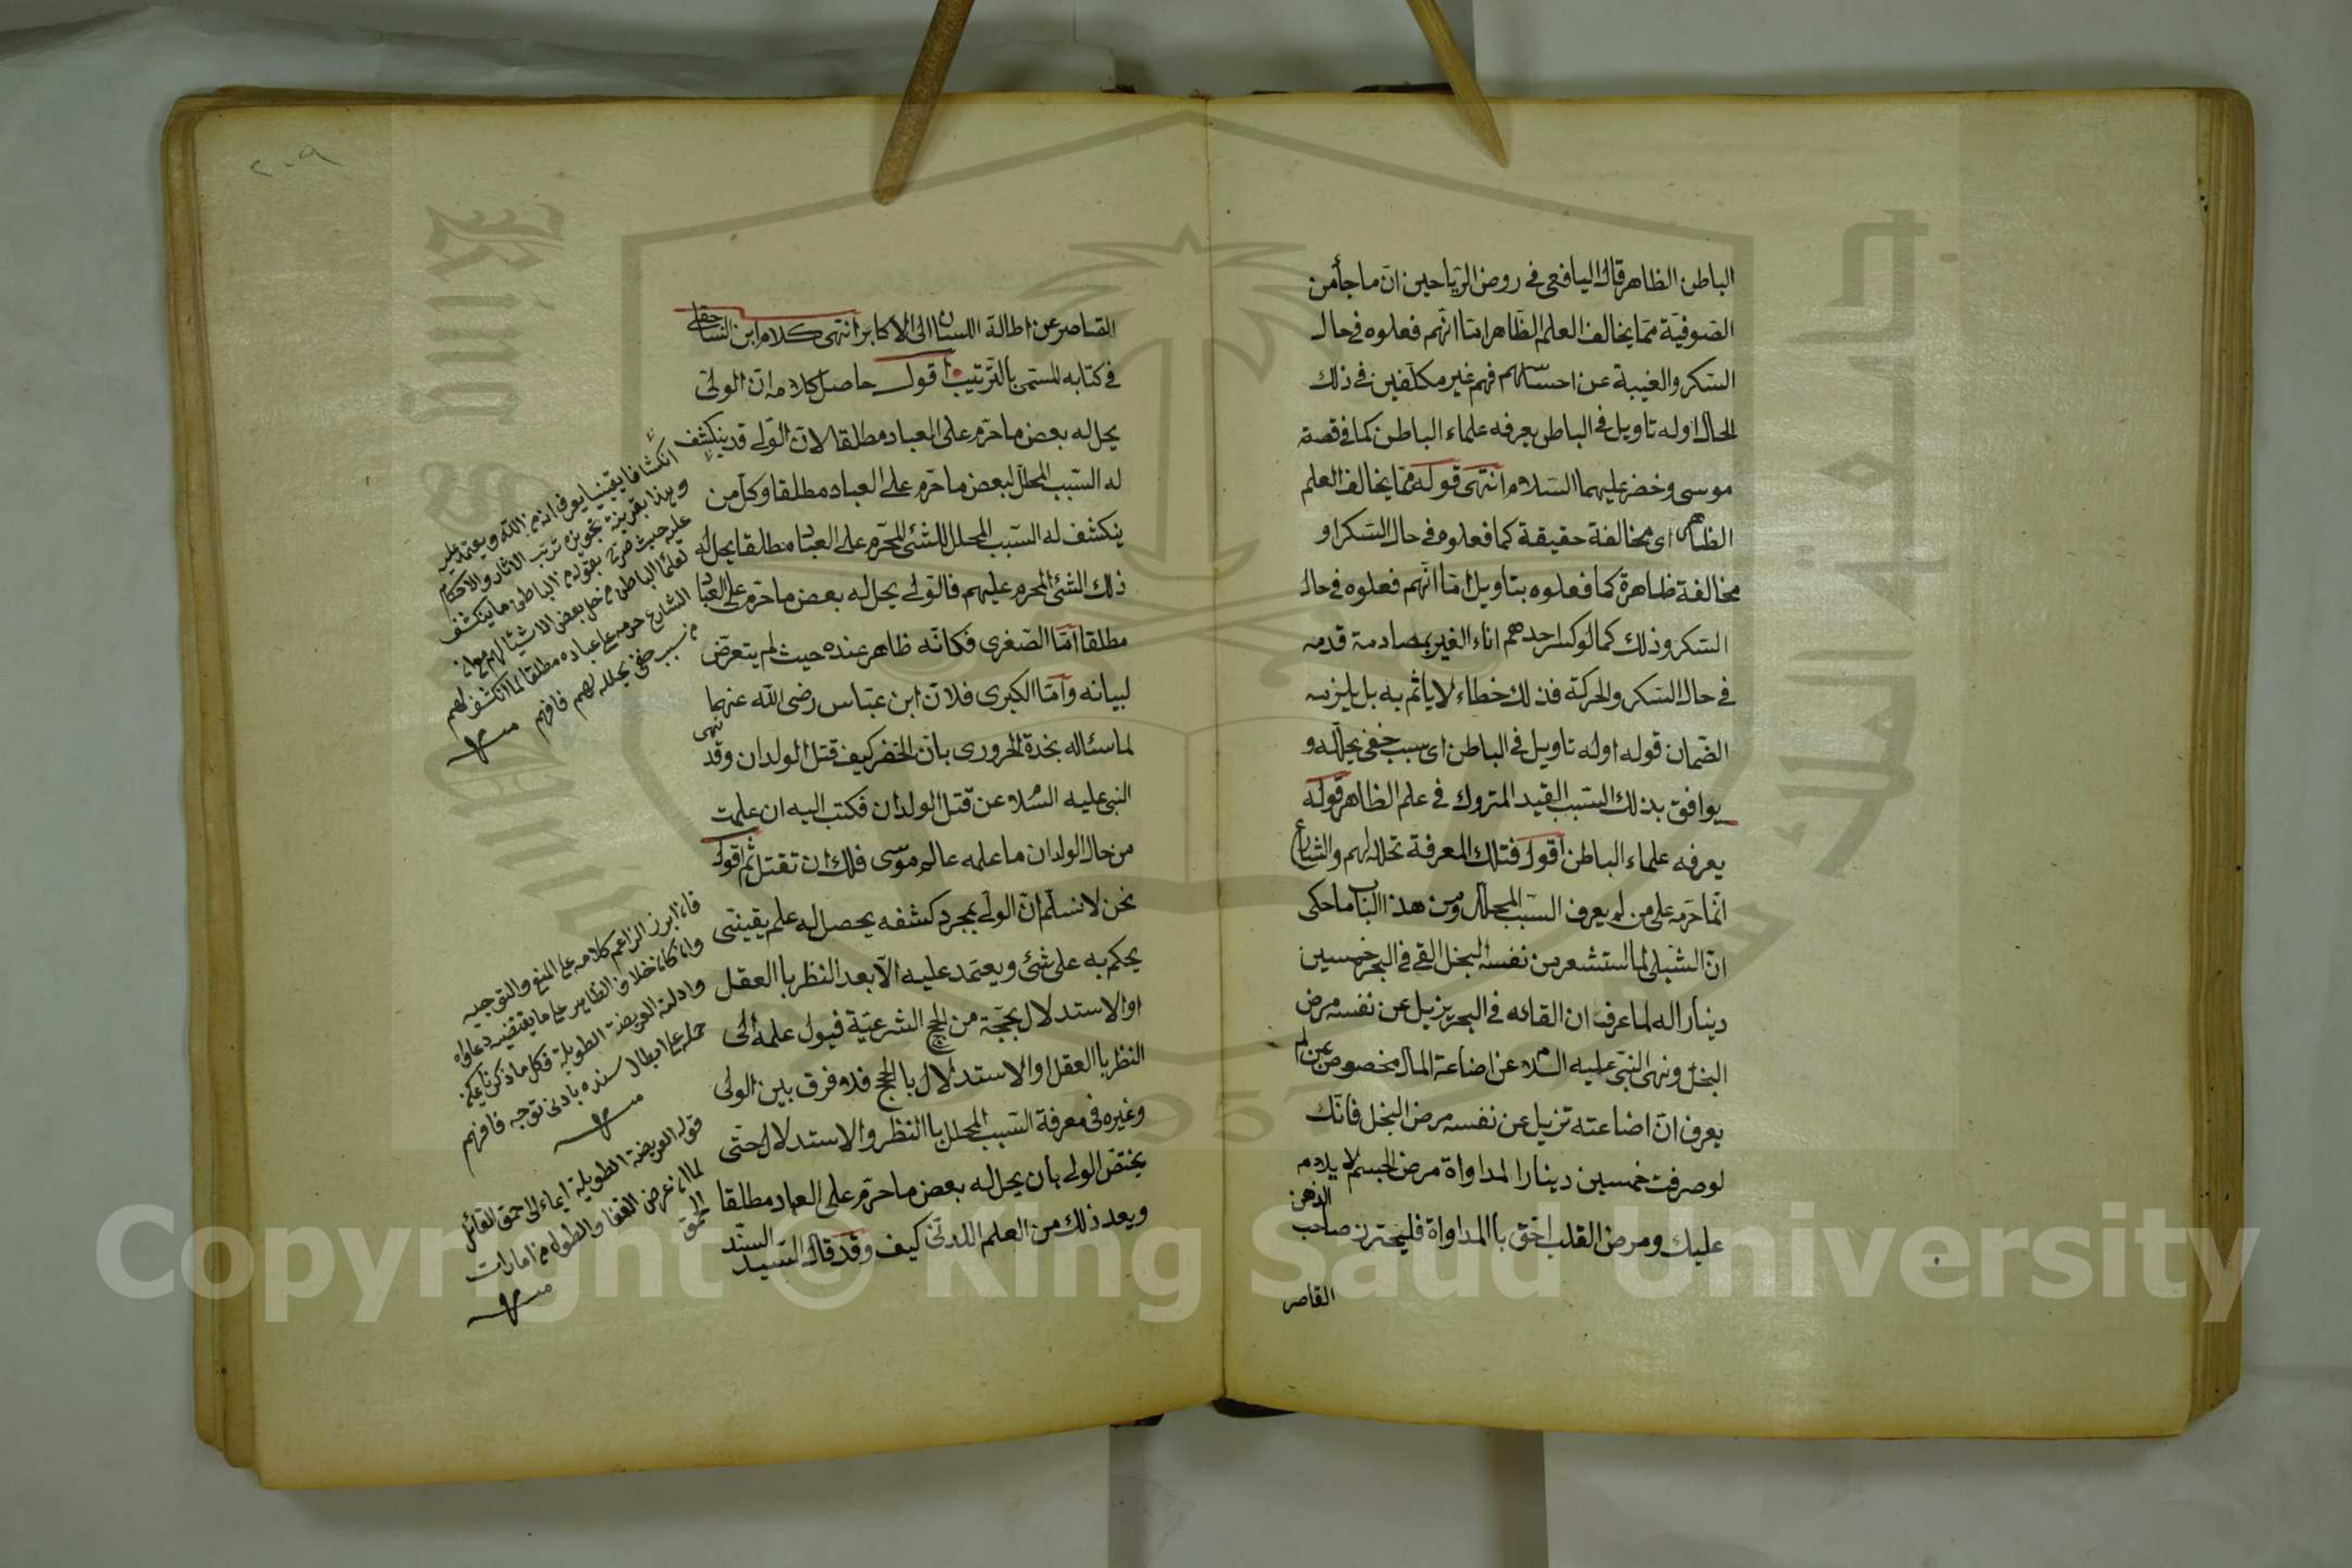 الباطن الظاهر قال اليافعي في روض الرياحين ان ما جأ من
الصوفية مما يخالف العلم الظاهر اما انهم فعلوه في حال
السكر والغيبة عن احساسهم فهم غير مكلفين في ذلك
الحال او له تاويل في الباطن يعرفه علماء الباطن كما في قصة
موسى وخضر عليهما السلام انتهى قوله مما يخالف العلم
الظاهر اى مخالفة حقيقة كما فعلوه في حال السكر او
مخالفة ظاهرة كما فعلوه بتاويل اما انهم فعلوه في حال
السكر وذلك كما لو كسر احدهم اناء الغير بمصادمة قدمه
في حال السكر والحركة فذلك خطاء لا ياثم به بل يلزمه
الضمان قوله او له تاويل في الباطن اى سبب خفي يحلله و
يوافق بذلك السبب القيد المتروك في علم الظاهر قوله
يعرفه علماء الباطن اقول فتلك المعرفة تحلله لهم والشارع
انما حرمه على من لم يعرف السبب المحلل ومن هذا الباب ما حكى
ان الشبلى لما استشعر من نفسه البخل القى في البحر خمسين
دينارا له لما عرف ان القائه في البحر يزيل عن نفسه مرض
البخل ونهى النبي عليه السلام عن اضاعة المال مخصوص بمن لم
يعرف ان اضاعته تزيل عن نفسه مرض البخل فانك
لو صرفت خمسين دينارا لمداواة مرض الجسم لا يلام
عليك ومرض القلب احق باالمداواة فليحترز صاحب الذهن
القاصر
٢٠٩
القاصر عن اطالة اللسان الى الاكابر انتهى كلام ابن الساجقلى
في كتابه المسمى بالترتيب اقول حاصل كلامه ان الولى
يحل له بعض ما حرم على العباد مطلقا لان الولى قد ينكشف
له السبب المحلل لبعض ما حرم على العباد مطلقا وكل من
ينكشف له السبب المحلل للشئ المحرم على العباد مطلقا يحل له
ذلك الشئ المحرم عليهم فالولى يحل له بعض ما حرم على العباد
مطلقا اما الصغرى فكانه ظاهر عنده حيث لم يتعرض
لبيانه واما الكبرى فلان ابن عباس رضى الله عنهما
لما سئاله نجدة الحرورى بان الخضر كيف قتل الولدان وقد نهى
النبى عليه السلام عن قتل الولدان فكتب اليه ان علمت
من حال الولدان ما علمه عالم موسى فلك ان تقتل ثم اقول
نحن لا نسلم ان الولى بمجرد كشفه يحصل له علم يقينى
يحكم به على شئ ويعتمد عليه الا بعد النظر باالعقل
او الاستدلال بحجة من الحجج الشرعية فيول علمه الى
النظر باالعقل او الاستدلال بالحجج فلا فرق بين الولى
وغيره في معرفة السبب المحلل باالنظر والاستدلال حتى
يختص الولى بان يحل له بعض ما حرم على العباد مطلقا
ويعد ذلك من العلم اللدنى كيف وقد قال السيد السند
انكشافا يقينيا يعرف انه من الله ويعتمد عليه
وهذا بقرينة تجويزه ترتب الاثار والاحكام
عليه حيث صرح بقوله من الباطن ما ينكشف
لعلماء الباطن من حل بعض الاشياء لهم مع ان
الشارع حرمه على عباده مطلقا لما انكشف لهم
من سبب خفى يحلله لهم فافهم
منه
فان ابرز الزاعم كلامه على المنع والتوجيه
وان كان خلاف الظاهر على ما يقتضيه دعاواه
وادلته العريضة الطويلة فكل ما ذكرنا يمكن
حمله على ابطال سنده بادنى توجه فافهم
منه
قوله العريضة الطويلة ايماء الى حمق القائل
لما ان عرض القفا والطول من امارات
الحمق
منه